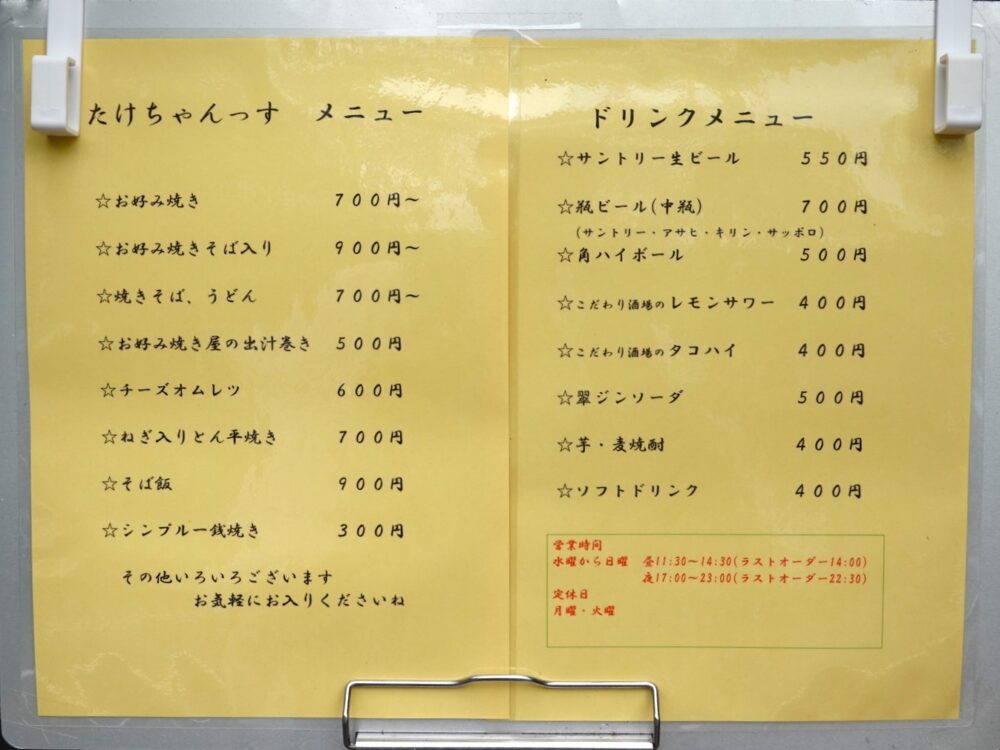 たけちゃんっす メニュー
☆お好み焼き ７００円～
☆お好み焼きそば入り ９００円～
☆焼きそば、うどん ７００円～
☆お好み焼き屋の出汁巻き ５００円
☆チーズオムレツ ６００円
☆ねぎ入りとん平焼き ７００円
☆そば飯 ９００円
☆シンプル一銭焼き ３００円
その他いろいろございます
お気軽にお入りくださいね
ドリンクメニュー
☆サントリー生ビール ５５０円
☆瓶ビール(中瓶) ７００円
(サントリー・アサヒ・キリン・サッポロ)
☆角ハイボール ５００円
☆こだわり酒場のレモンサワー ４００円
☆こだわり酒場のタコハイ ４００円
☆翠ジンソーダ ５００円
☆芋・麦焼酎 ４００円
☆ソフトドリンク ４００円
営業時間
水曜から日曜 昼11:30～14:30(ラストオーダー14:00)
夜17:00～23:00(ラストオーダー22:30)
定休日
月曜・火曜